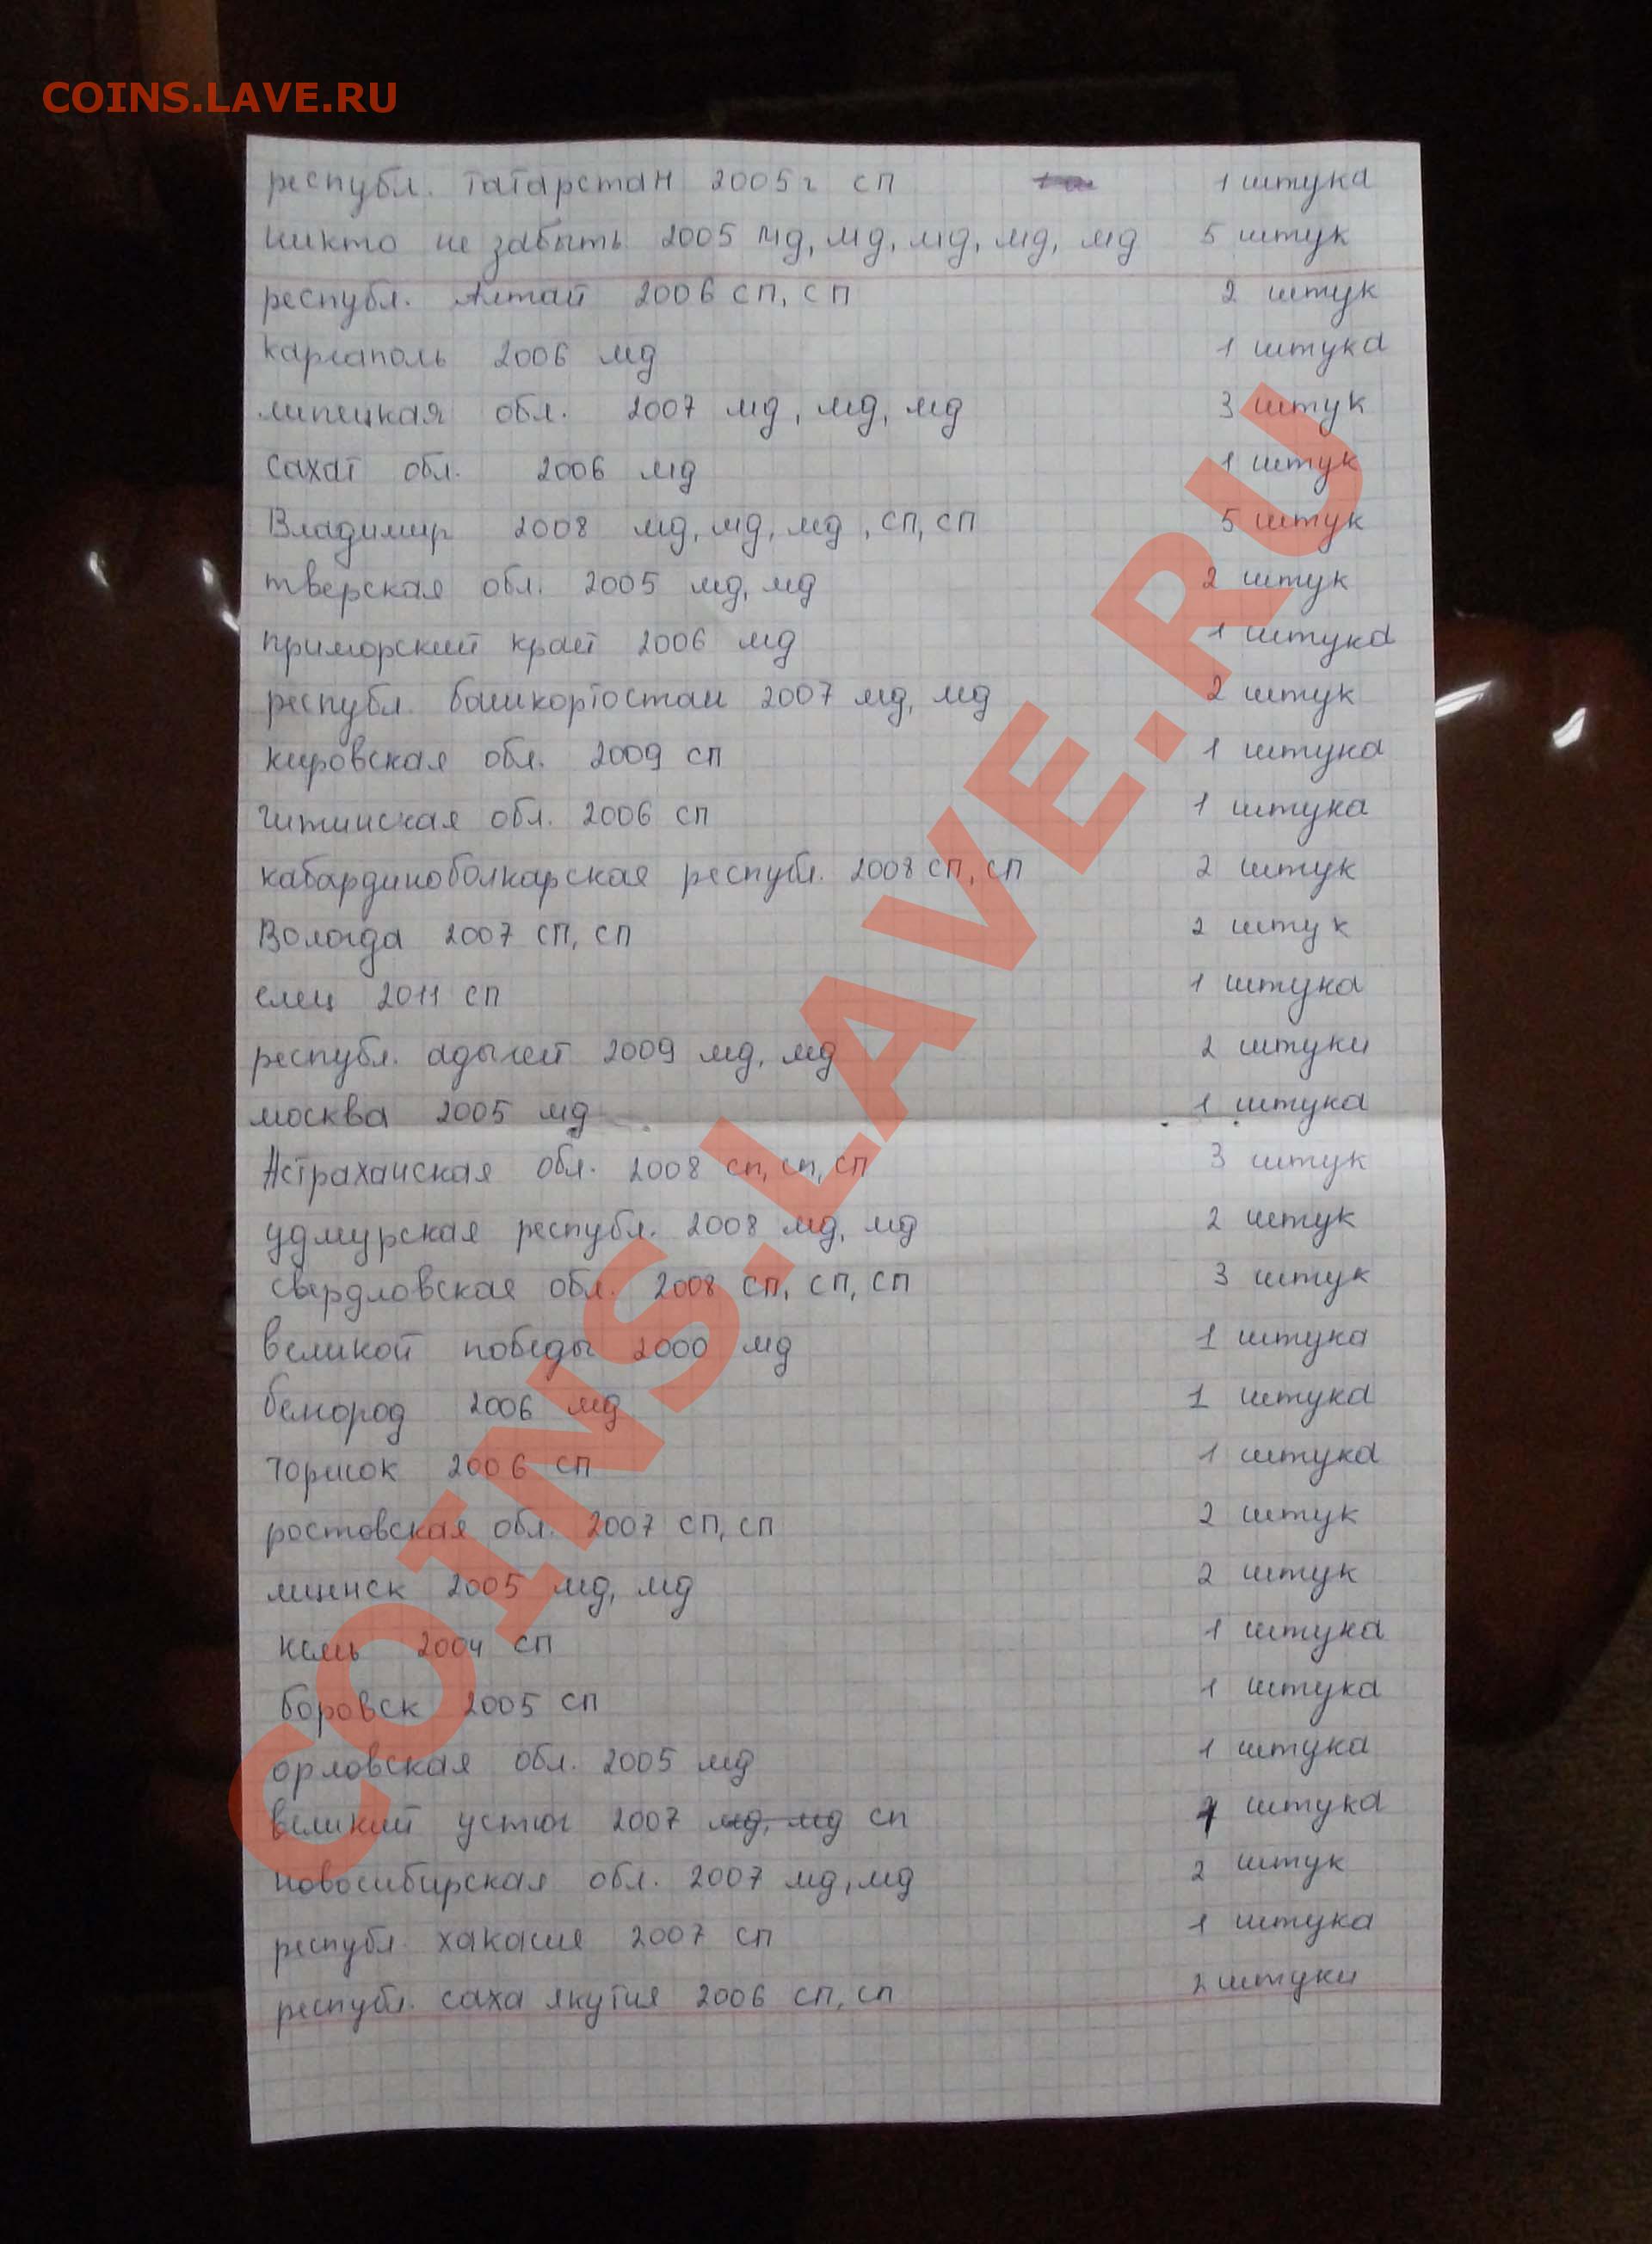 COINS.LAVE.RU
республ. татарстан 2005г сп 1 штука
никто не забыть 2005 мд, мд, мд, мд, мд 5 штук
республ. Алтай 2006 сп, сп 2 штук
каргаполь 2006 мд 1 штука
липецкая обл. 2007 мд, мд, мд 3 штук
сахат обл. 2006 мд 1 штук
Владимир 2008 мд, мд, мд, сп, сп 5 штук
тверская обл. 2005 мд, мд 2 штук
приморский край 2006 мд 1 штука
республ. башкортостан 2007 мд, мд 2 штук
кировская обл. 2009 сп 1 штука
читинская обл. 2006 сп 1 штука
кабардиноболкарская республ. 2008 сп, сп 2 штук
Вологда 2007 сп, сп 2 штук
елец 2011 сп 1 штука
республ. адыгей 2009 мд, мд 2 штуки
москва 2005 мд 1 штука
Астраханская обл. 2008 сп, сп, сп 3 штук
удмурская республ. 2008 мд, мд 2 штук
свердловская обл. 2008 сп, сп, сп 3 штук
великой победы 2000 мд 1 штука
белгород 2006 мд 1 штука
торжок 2006 сп 1 штука
ростовская обл. 2007 сп, сп 2 штук
мценск 2005 мд, мд 2 штук
кемь 2004 сп 1 штука
боровск 2005 сп 1 штука
орловская обл. 2005 мд 1 штука
великий устюг 2007 мд, мд сп 1 штука
новосибирская обл. 2007 мд, мд 2 штук
республ. хакасия 2007 сп 1 штука
республ. саха якутия 2006 сп, сп 2 штуки
COINS.LAVE.RU